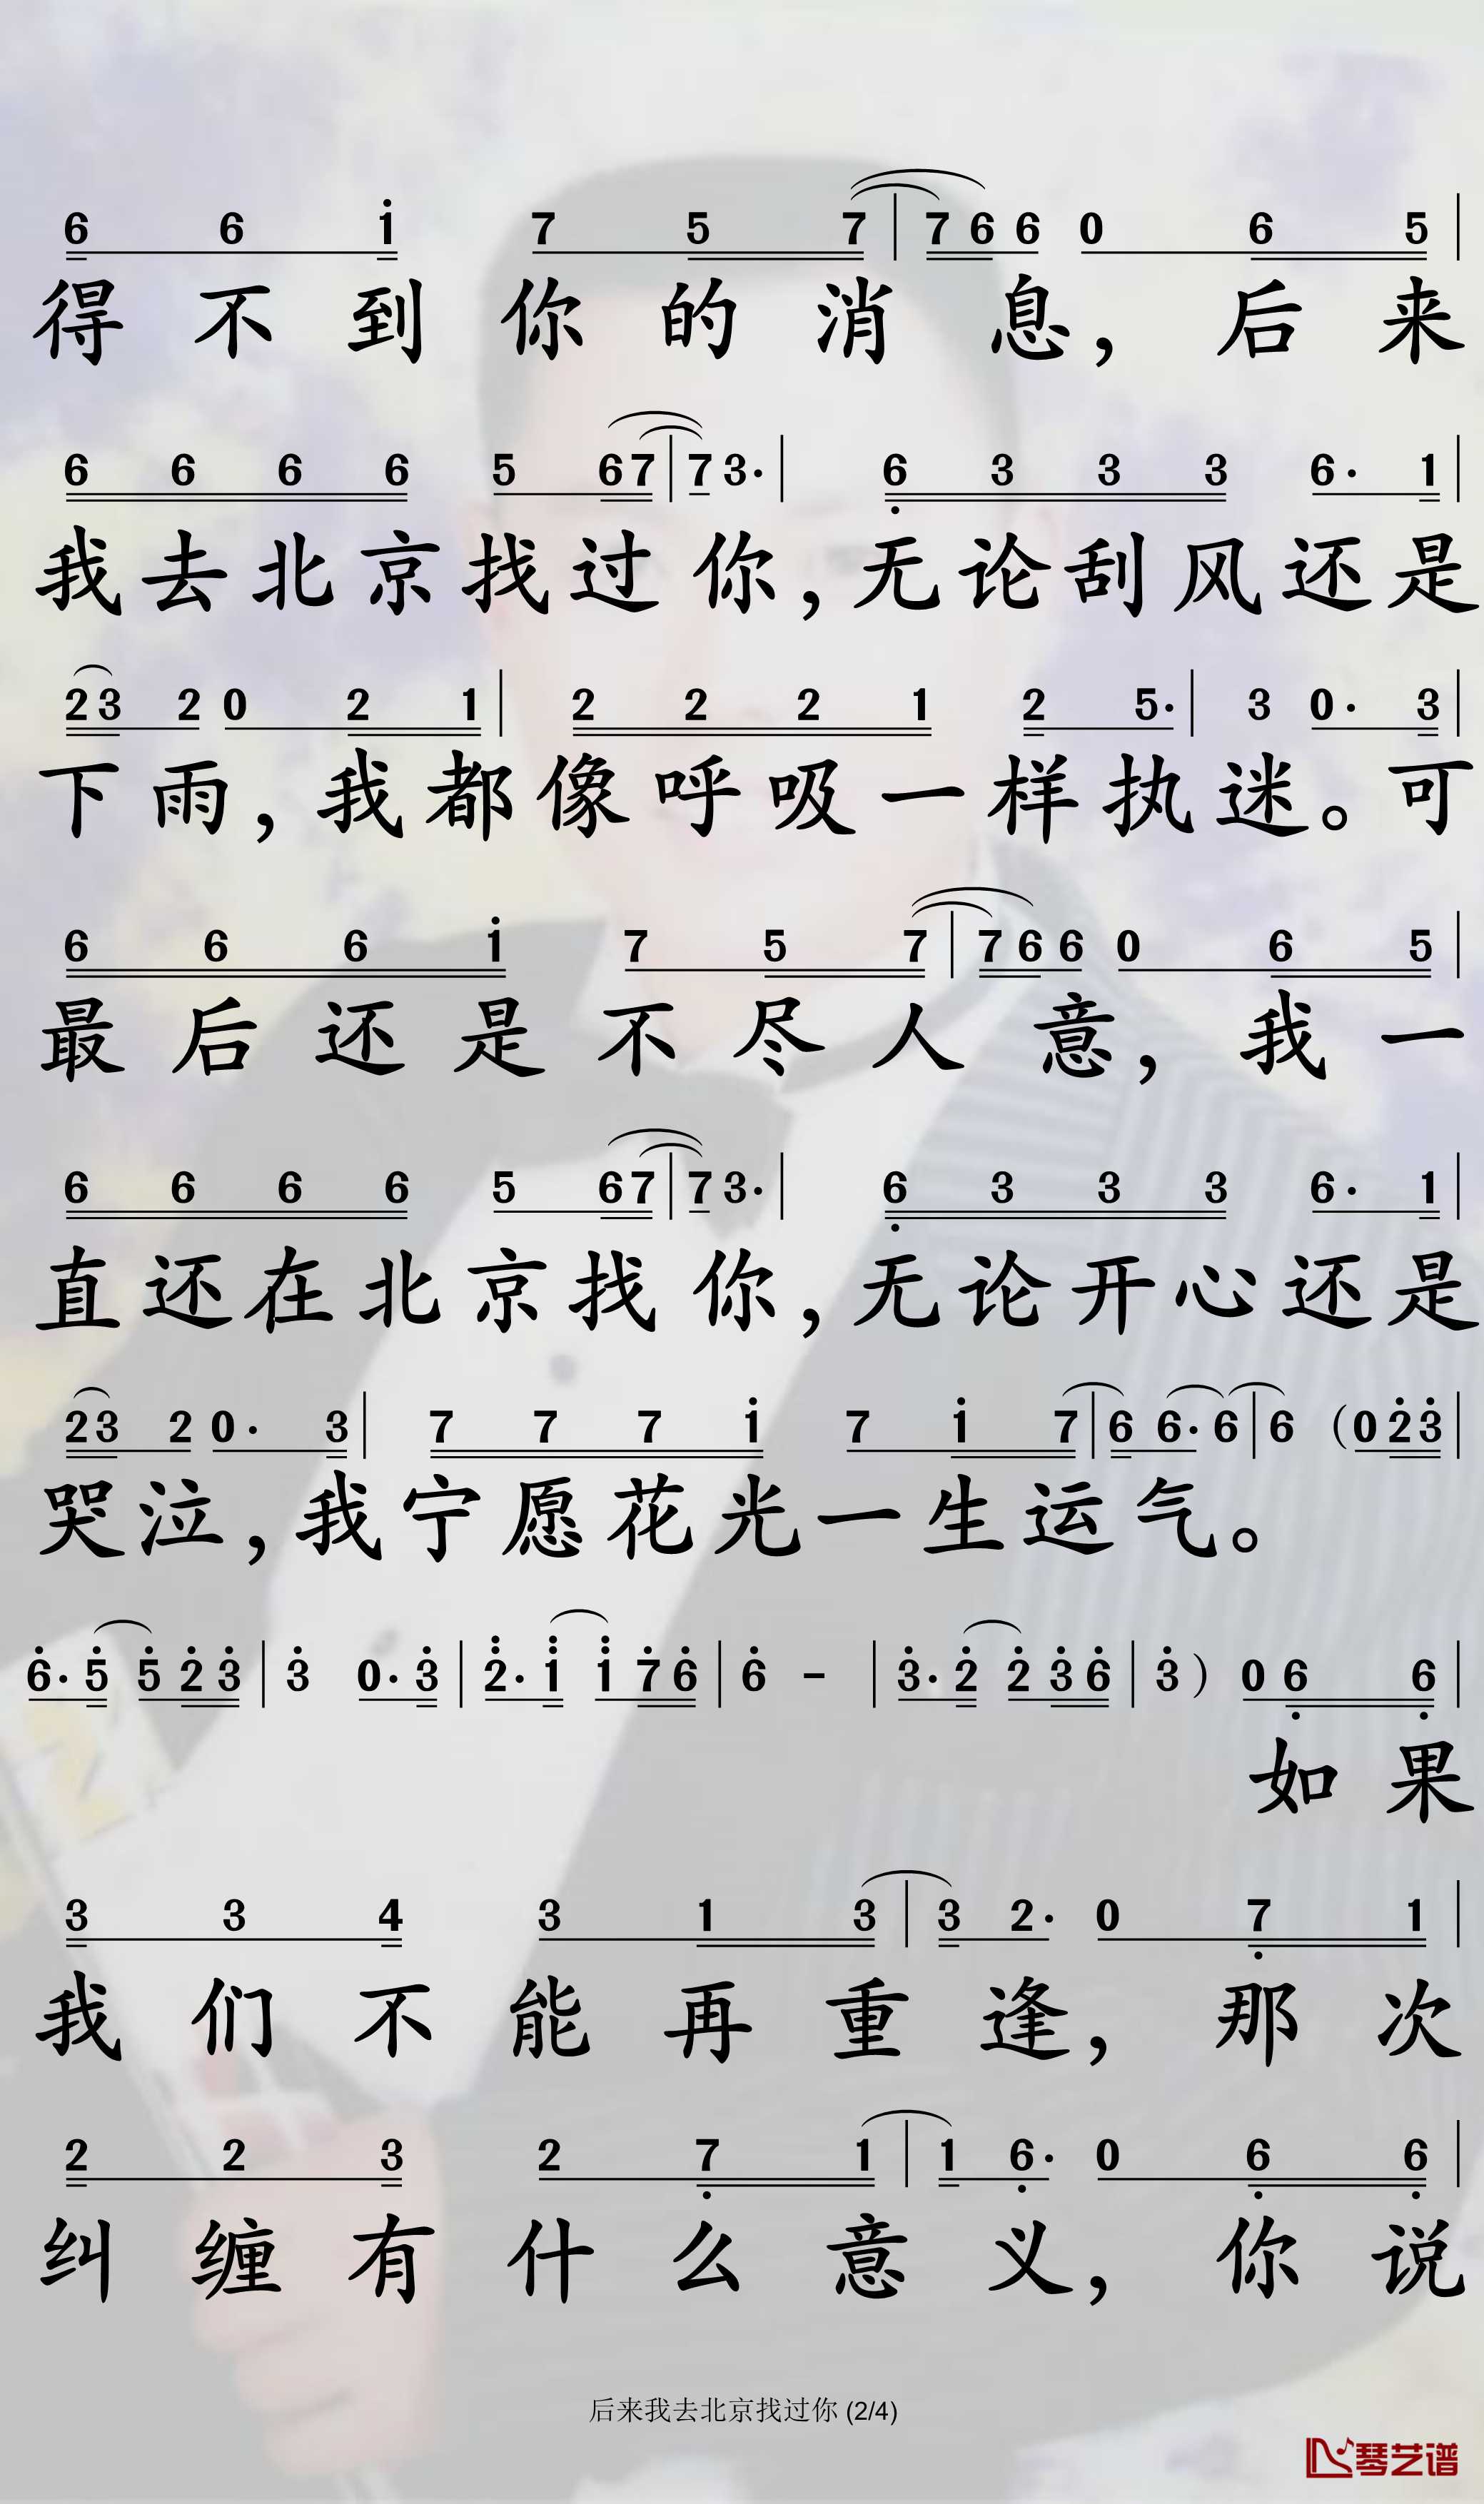 6 6 1̇ 7 5 7 | 7 6 6 0 6 5 |
得不到你的消息，后来
6 6 6 6 5 6 7 | 7 3· | 6̣ 3 3 3 6· 1 |
我去北京找过你，无论刮风还是
2 3 2 0 2 1 | 2 2 2 1 2 5· | 3 0· 3 |
下雨，我都像呼吸一样执迷。可
6 6 6 1̇ 7 5 7 | 7 6 6 0 6 5 |
最后还是不尽人意，我一
6 6 6 6 5 6 7 | 7 3· | 6̣ 3 3 3 6· 1 |
直还在北京找你，无论开心还是
2 3 2 0· 3 | 7 7 7 1̇ 7 1̇ 7 | 6 6· 6 | 6 （0 2̇ 3̇ |
哭泣，我宁愿花光一生运气。
6̇· 5̇ 5̇ 2̇ 3̇ | 3̇ 0· 3̇ | 2̈· 1̈ 1̈ 7̇ 6̇ | 6̇ － | 3̇· 2̇ 2̇ 3̇ 6̇ | 3̇ ） 0 6̣ 6̣ |
如果
3 3 4 3 1 3 | 3 2· 0 7̣ 1 |
我们不能再重逢，那次
2 2 3 2 7̣ 1 | 1 6̣· 0 6̣ 6̣ |
纠缠有什么意义，你说
后来我去北京找过你 (2/4)
琴艺谱